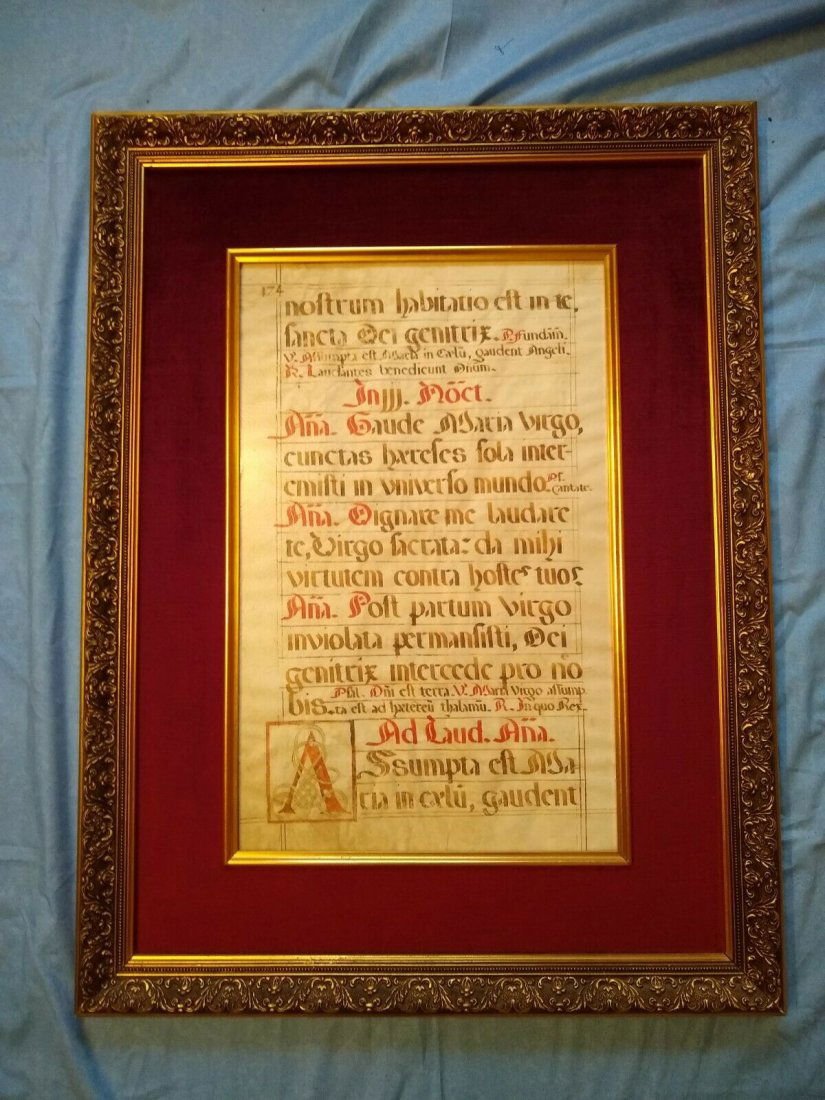 174
nostrum habitatio est in te,
sancta Dei genitrix. Ps. Fundām.
V. Assumpta est Maria in cælū, gaudent Angeli.
R. Laudantes benedicunt Dnum.
In jjj. Nōct.
Aña. Gaude Maria Virgo,
cunctas hæreses sola inter-
emisti in universo mundo. Ps. Cantate.
Aña. Dignare me laudare
te, Virgo sacrata: da mihi
virtutem contra hostes tuos
Aña. Post partum virgo
inviolata permansisti, Dei
genitrix intercede pro no
bis. Psal. Dñi est terra. V. Maria Virgo assump
ta est ad hætereū thalamū. R. In quo Rex.
Ad Laud. Aña.
Assumpta est Ma-
ria in cælū, gaudent